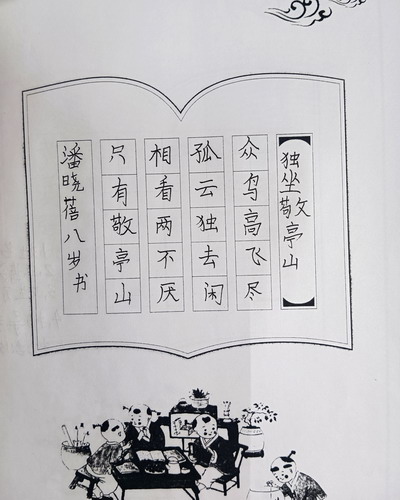 独坐敬亭山
众鸟高飞尽
孤云独去闲
相看两不厌
只有敬亭山
潘晓蓓八岁书